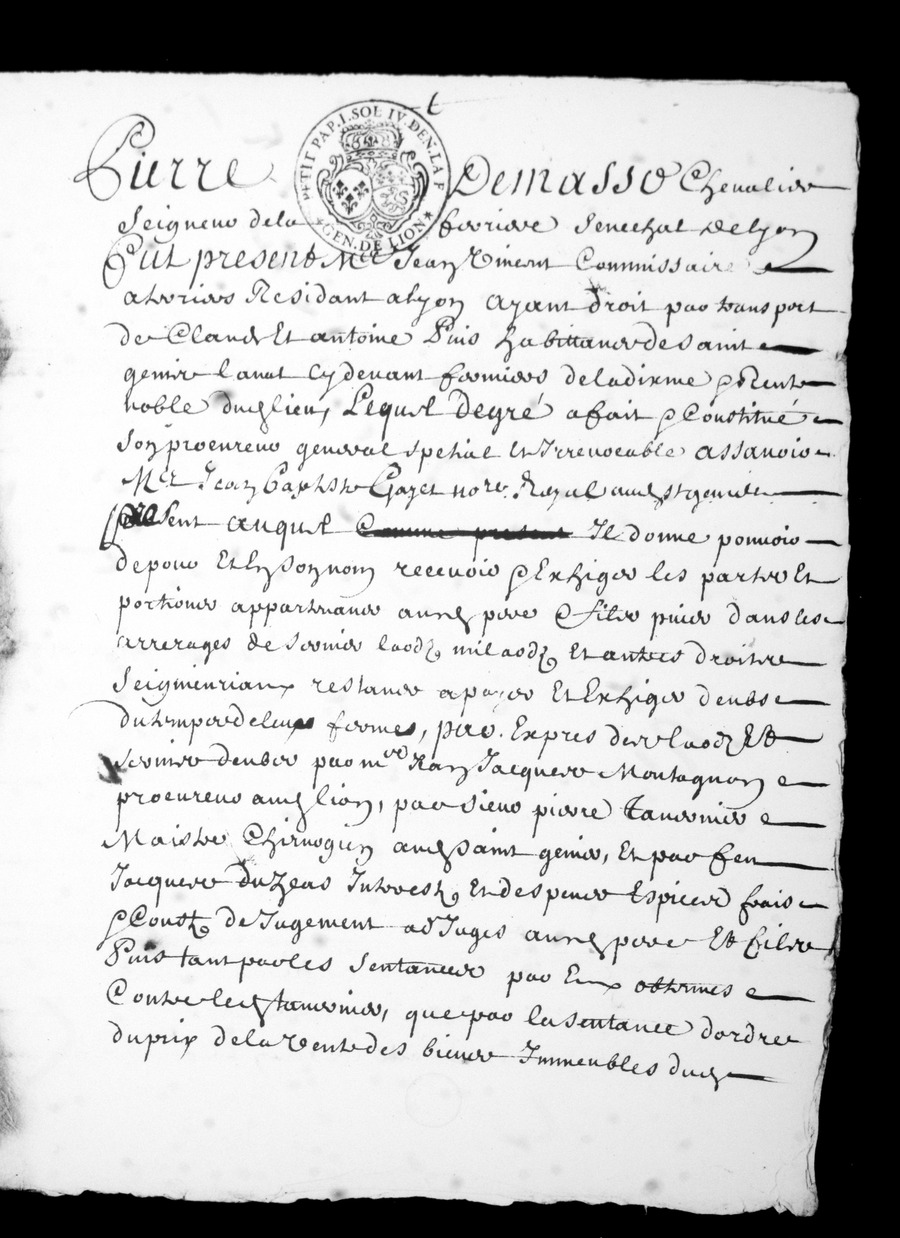 PETIT PAP. I. SOL IV. DEN. LA F
GEN. DE LION
Pierre Demasso Chevalier
Seigneur dela ferriere Senechal delyon
fut present Mre Jean Vincent Commissaire
aterrier Residant alyon ayant droit par transport
de Claude Et antoine Puis habittants de saint
genis lanat cydevant fermiers deladixme & Rente
noble dud lieu, Lequel degré a fait & Constitué
son procureur general spetial Et Irrevocable assavoir
Mre Jean Baptiste Gayet nore Royal aud st genis
present auquel Comme present Il donne pouvoir
depour Et En son nom recevoir & Exhiger les parts Et
portions appartenants ausd pere & fils puis dans les
arrerages de servis laodz milaodz Et autres droits
Seigneuriaux restants apayer Et Exhiger deubs
dutemps deleurs fermes, par Expres des laodz Et
servis deubs par mre Jean Jacques Montagnon
procureur aud lion, par sieur pierre tavernier
Maistre Chirurgien aud saint genis, Et par feu
Jacques Duzeas Interestz Et despens Espices frais
& Coustz de Jugement adjugés ausd pere Et fils
Puis tant par les sentances par Eux obtenues
Contre led tavernier, que par la sentance dordre
du prix dela Vente des biens Immeubles dud